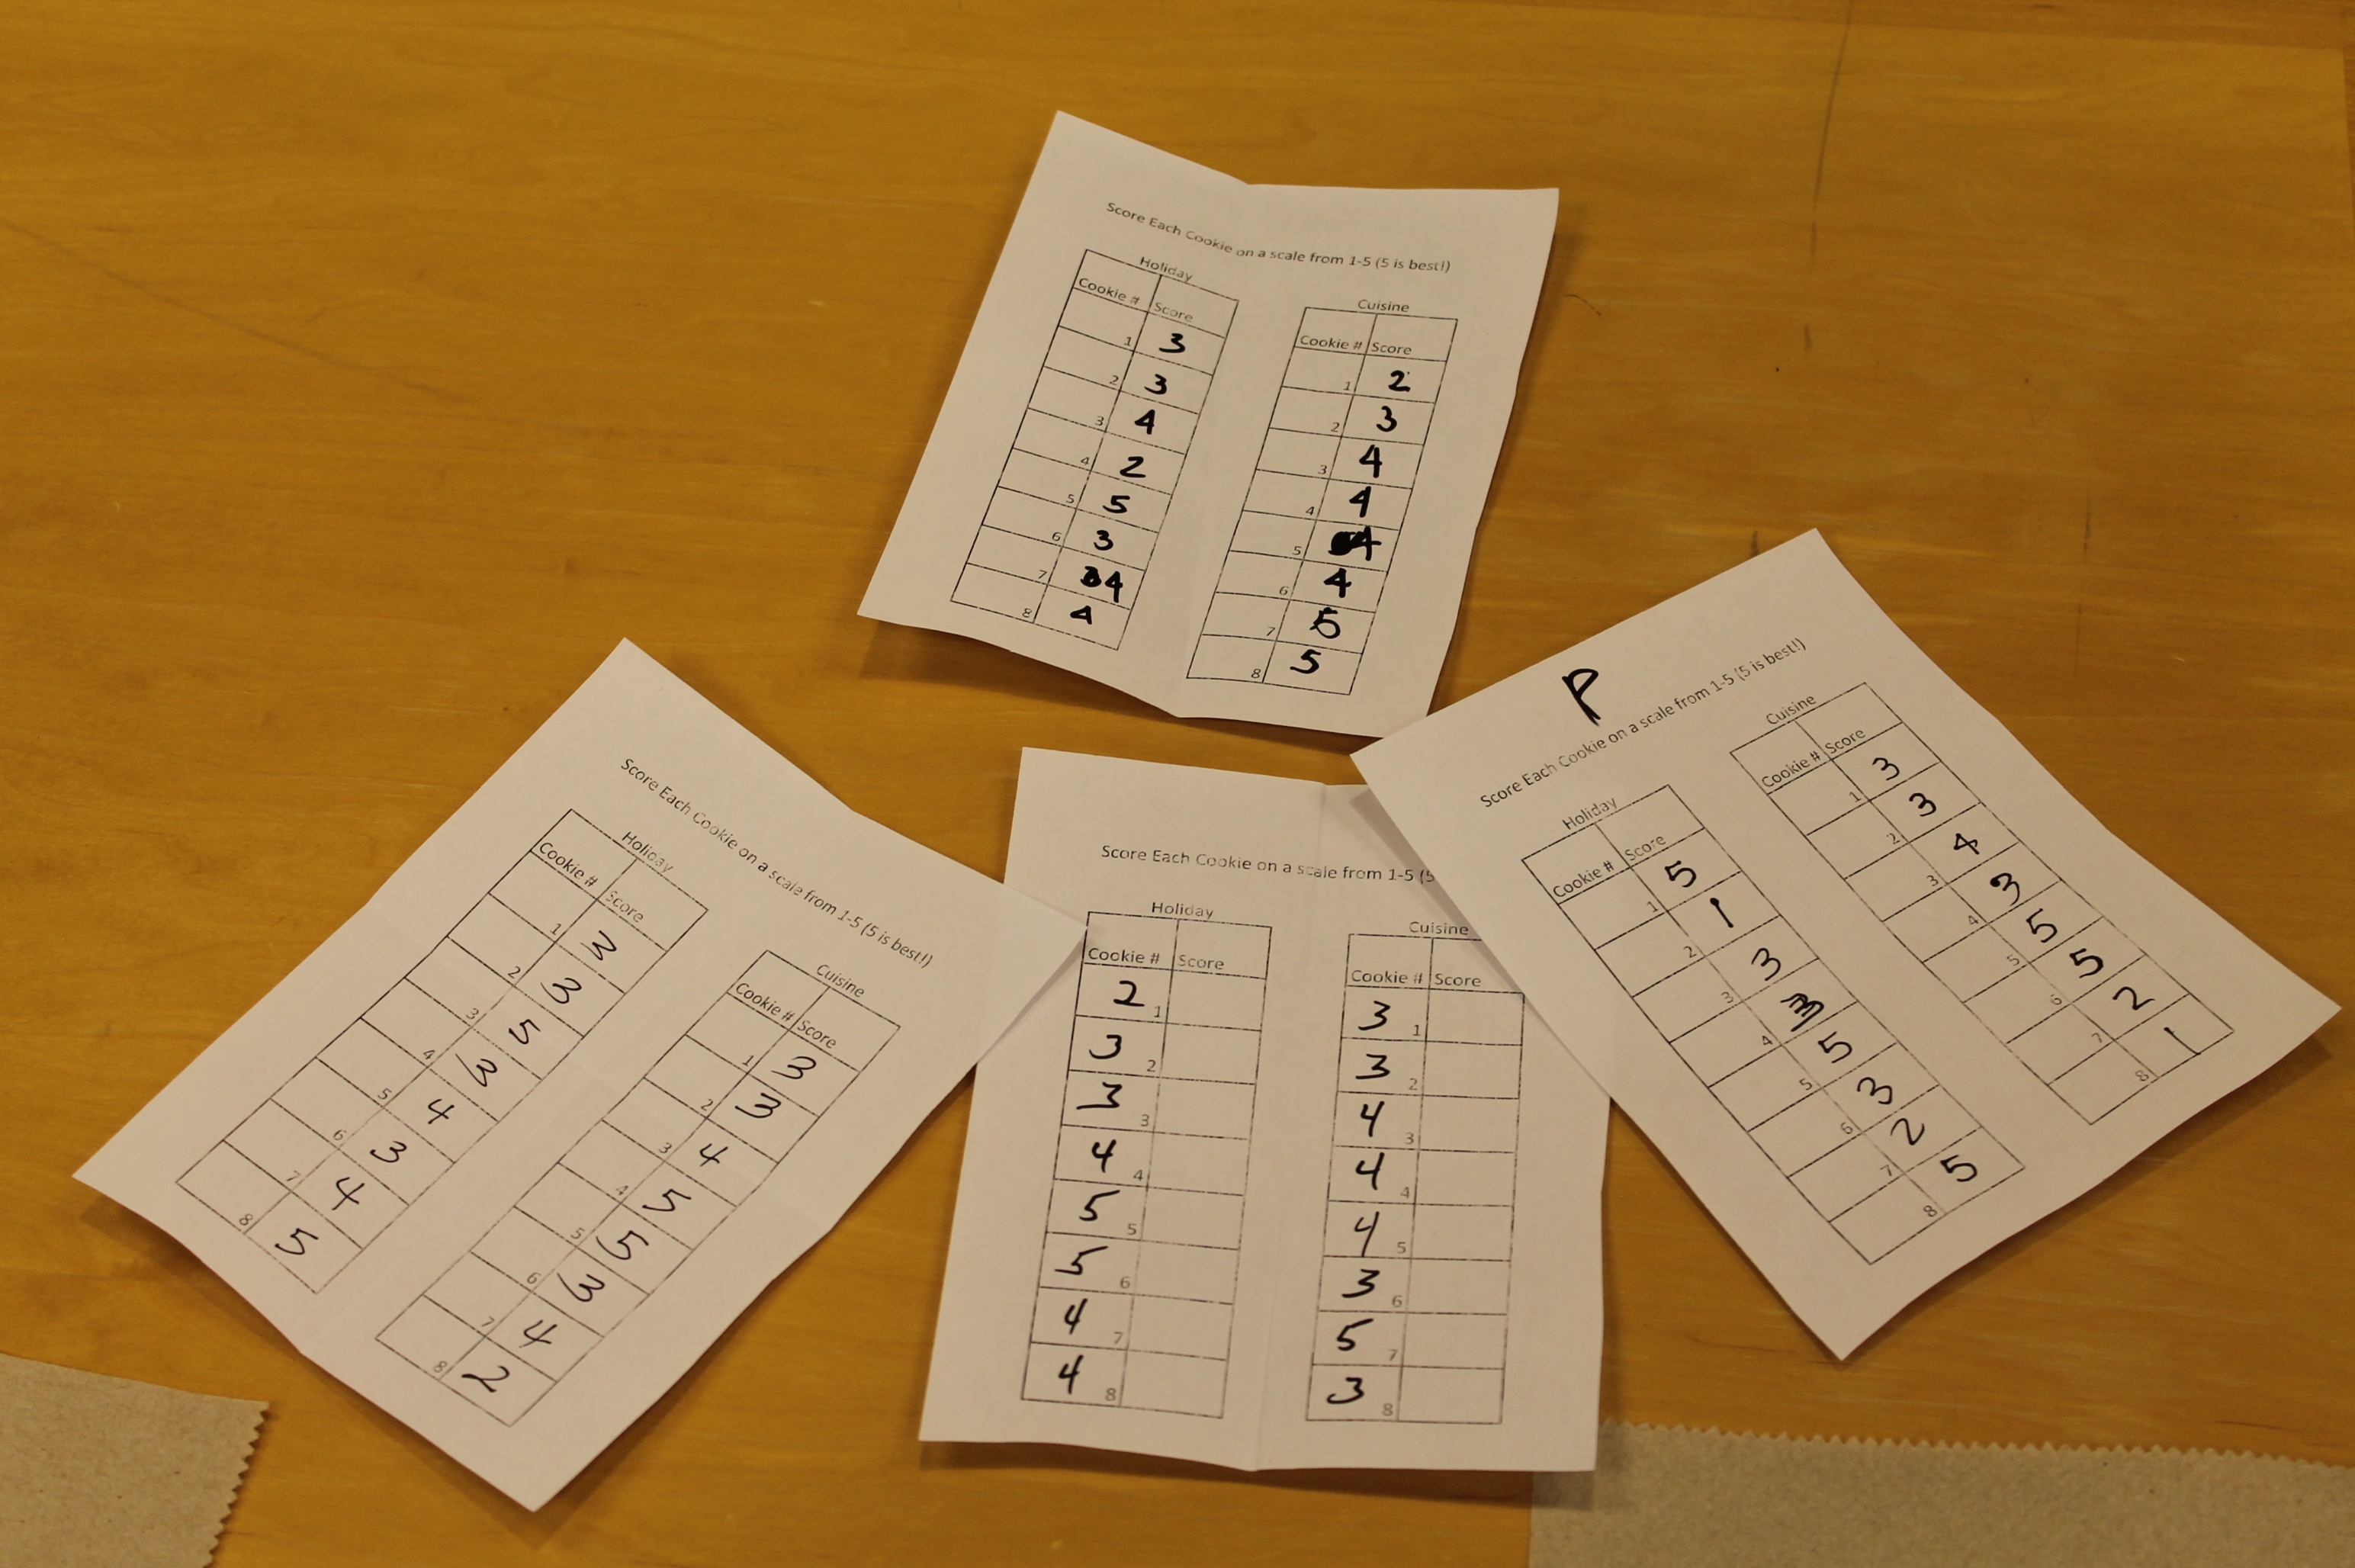 Score Each Cookie on a scale from 1-5 (5 is best!)
Holiday
Cookie # Score
1 3
2 3
3 4
4 2
5 5
6 3
7 4
8 4
Cuisine
Cookie # Score
1 2
2 3
3 4
4 4
5 4
6 4
7 5
8 5
Score Each Cookie on a scale from 1-5 (5 is best!)
Holiday
Cookie # Score
1 3
2 3
3 5
4 3
5 4
6 3
7 4
8 5
Cuisine
Cookie # Score
1 3
2 3
3 4
4 5
5 5
6 3
7 4
8 2
Score Each Cookie on a scale from 1-5 (5
Holiday
Cookie # Score
2 1
3 2
3 3
4 4
5 5
5 6
4 7
4 8
Cuisine
Cookie # Score
3 1
3 2
4 3
4 4
4 5
3 6
5 7
3 8
P
Score Each Cookie on a scale from 1-5 (5 is best!)
Holiday
Cookie # Score
1 5
2 1
3 3
4
5 5
6 3
7 2
8 5
Cuisine
Cookie # Score
1 3
2 3
3 4
4 3
5 5
6 5
7 2
8 1